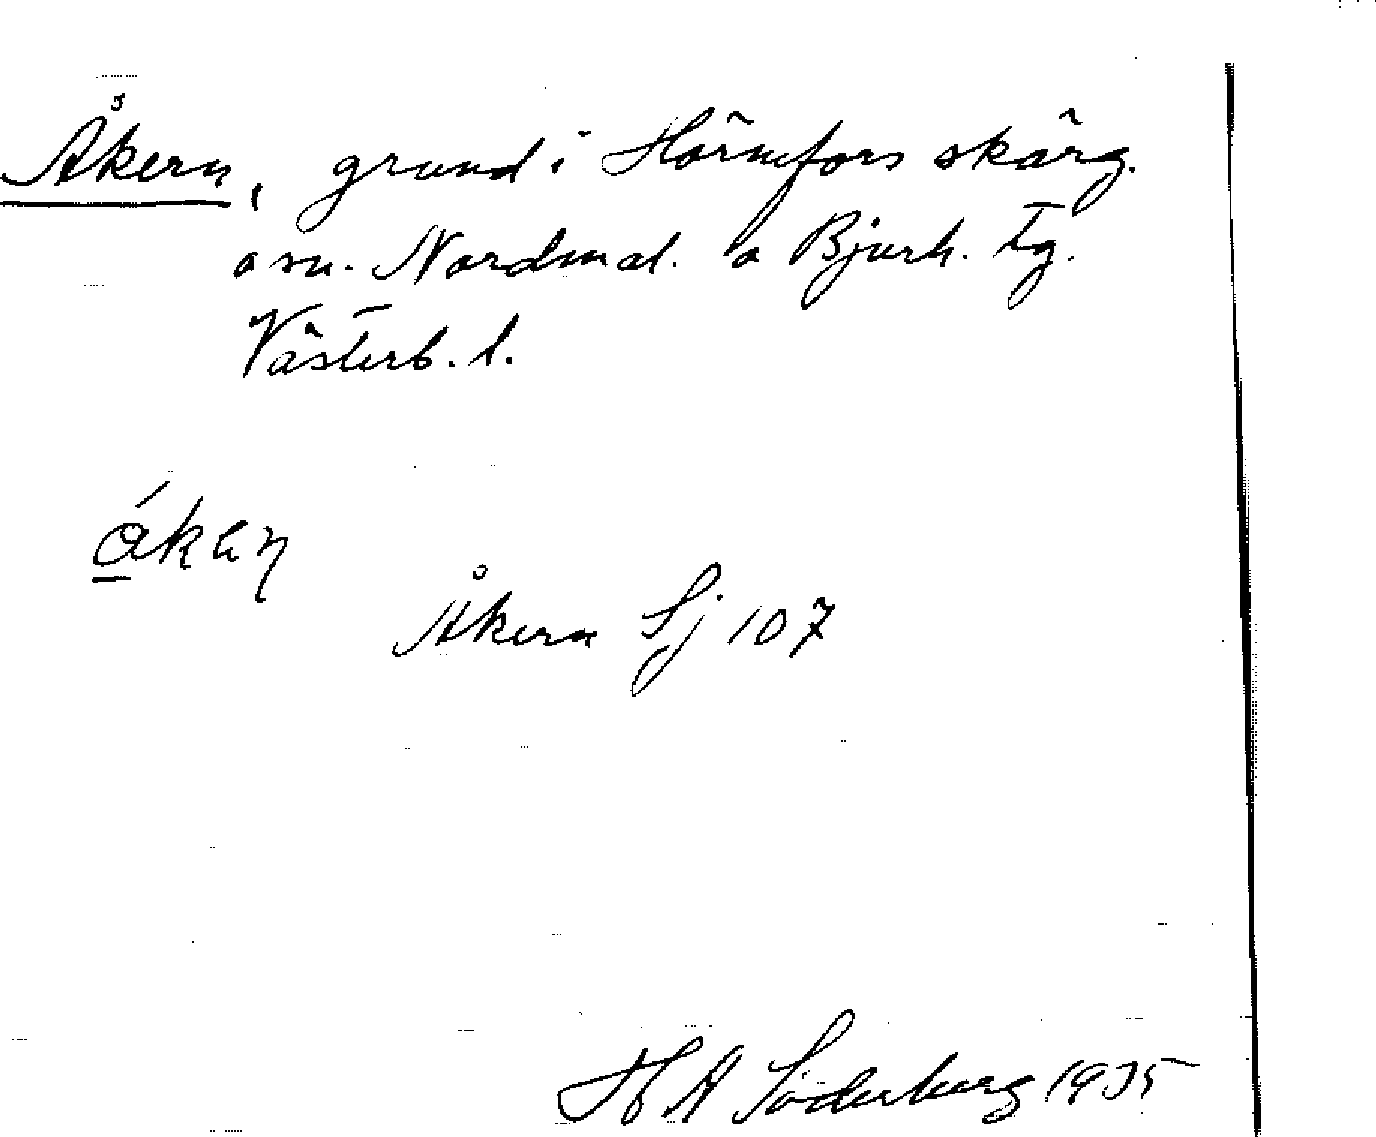 Åkern, grund i Hörnefors skärg.
o sn. Nordmal. o Bjurh. tg.
Västerb. l.
Åkern Sj 107
H A Söderberg 1935